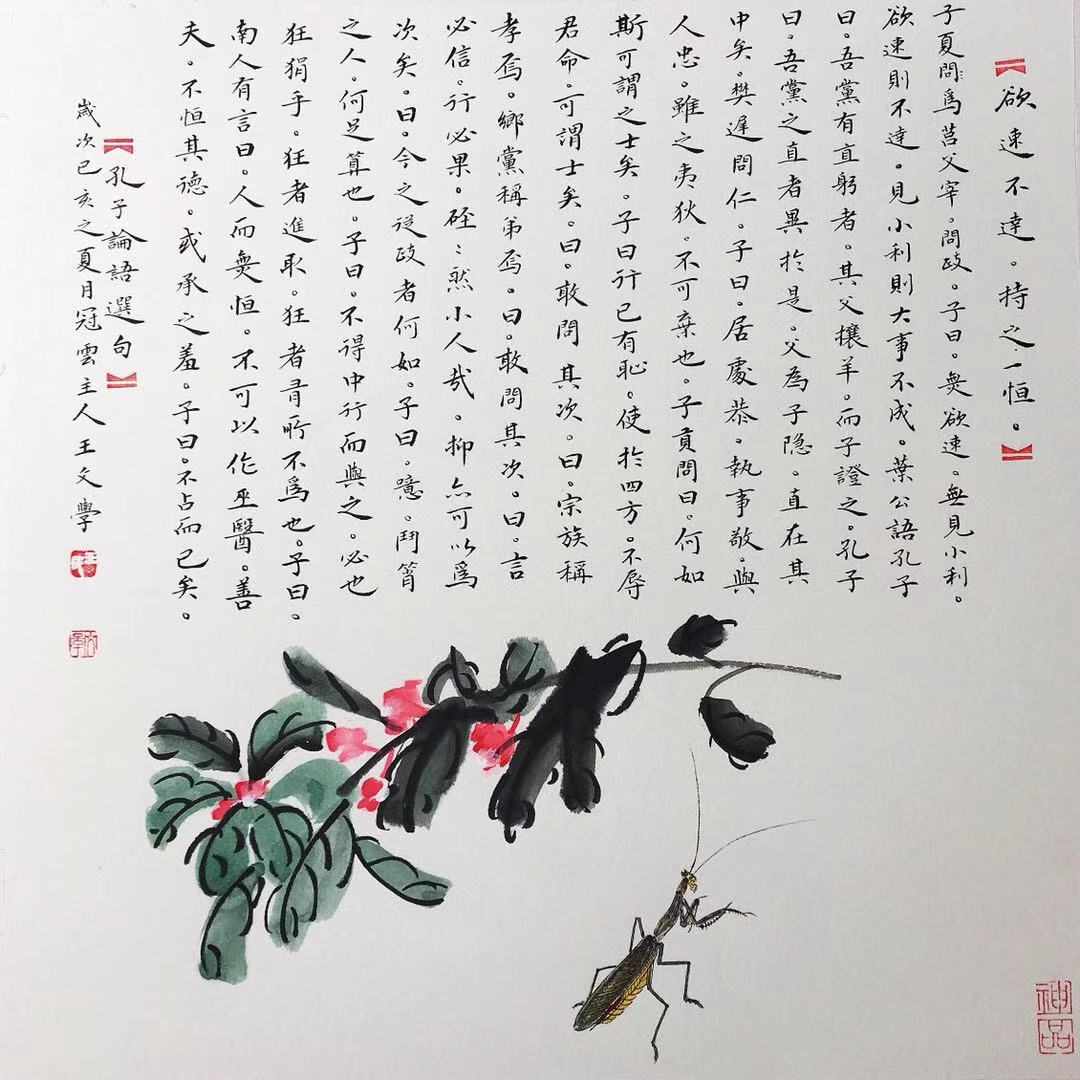 【欲速不達。持之一恒。】
子夏問:爲莒父宰。問政。子曰。無欲速。無見小利。
欲速則不達。見小利則大事不成。葉公語孔子
曰。吾黨有直躬者。其父攘羊。而子證之。孔子
曰。吾黨之直者異於是。父為子隐。直在其
中矣。樊遲問仁。子曰。居處恭。執事敬。與
人忠。雖之夷狄。不可棄也。子貢問曰。何如
斯可謂之士矣。子曰行己有恥。使於四方。不辱
君命。可謂士矣。曰。敢問其次。曰。宗族稱
孝焉。鄉黨稱弟焉。曰。敢問其次。曰。言
必信。行必果。硜:然小人哉。抑亦可以爲
次矣。曰。今之從政者何如。子曰。噫。鬥筲
之人。何足算也。子曰。不得中行而與之。必也
狂狷乎。狂者進取。狂者有所不爲也。子曰。
南人有言曰。人而無恒。不可以作巫醫。善
夫。不恒其德。或承之羞。子曰。不占而已矣。
【孔子論語選句】
歲次己亥之夏月冠雲主人王文學
神品